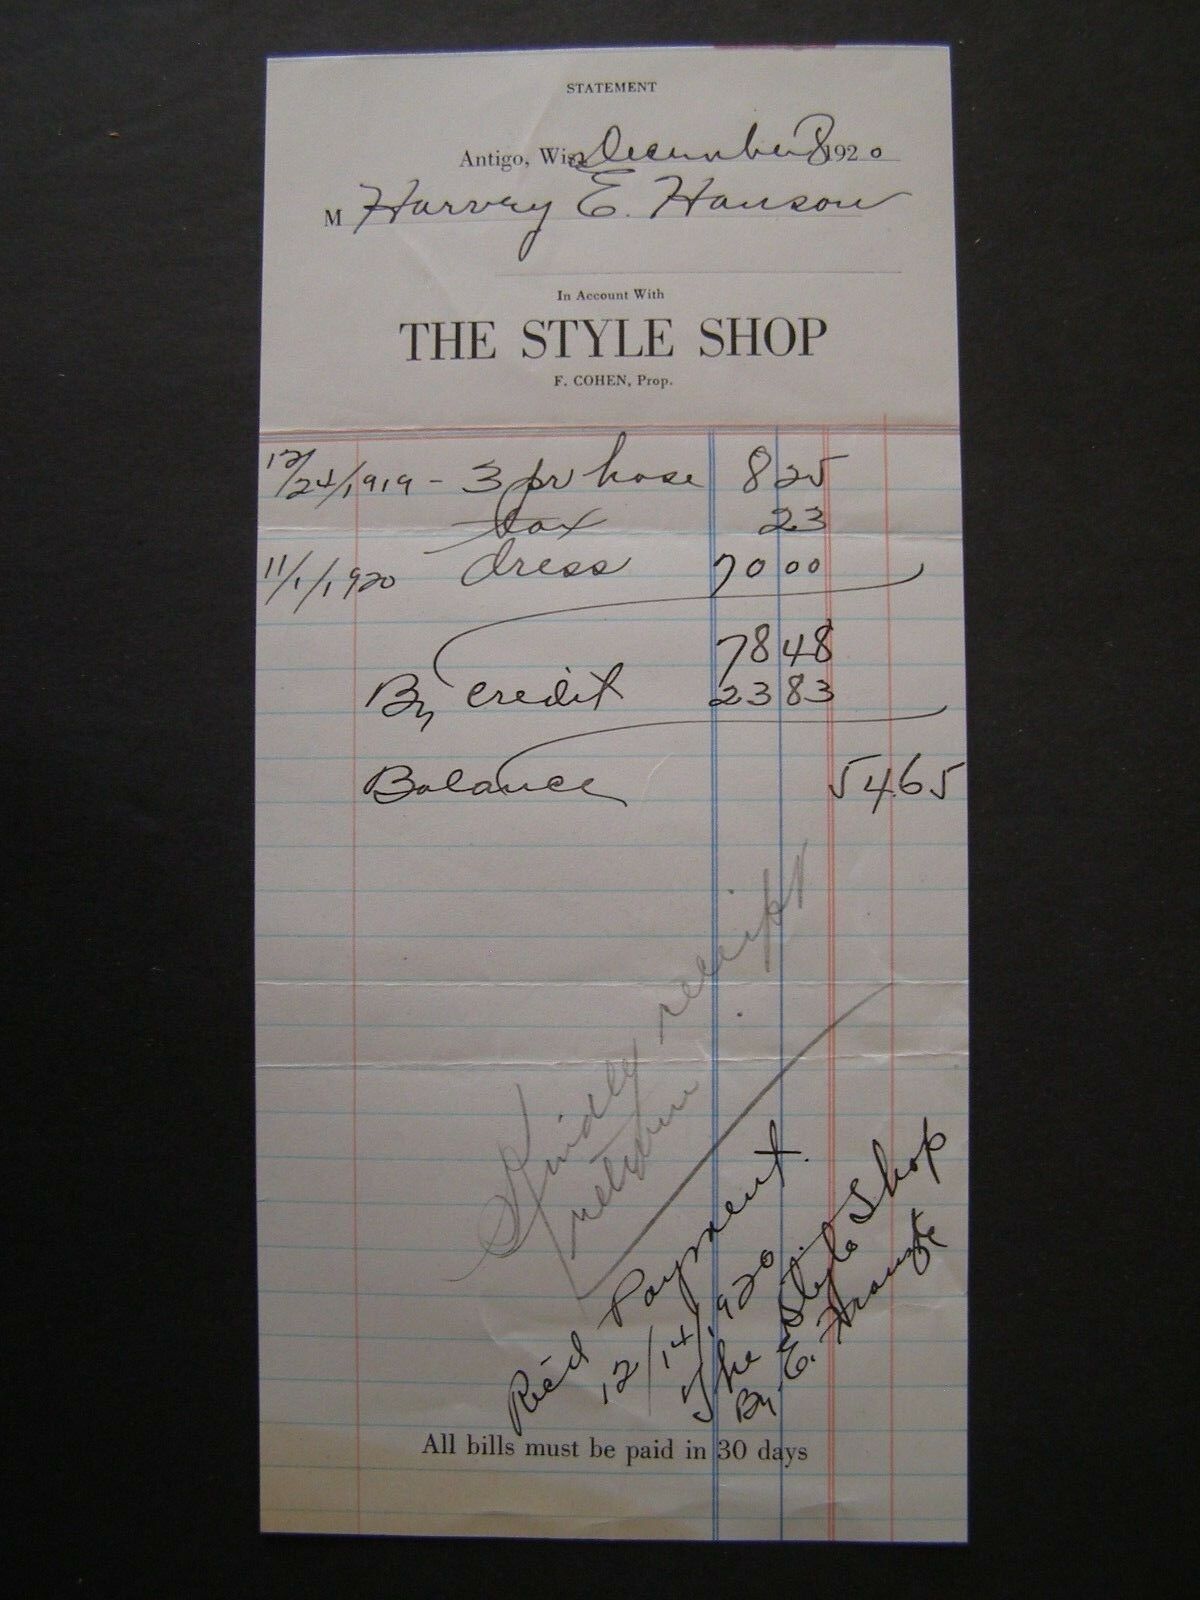 STATEMENT
Antigo, Wis. December 8 1920
M Harvey E. Hanson
In Account With
THE STYLE SHOP
F. COHEN, Prop.
12/24/1919 - 3 pr hose 8 25
tax 23
11/1/1920 dress 70 00
78 48
By credit 23 83
Balance 54 65
Kindly receipt
return
Rec'd Payment.
12/14/1920
The Style Shop
By E.
All bills must be paid in 30 days